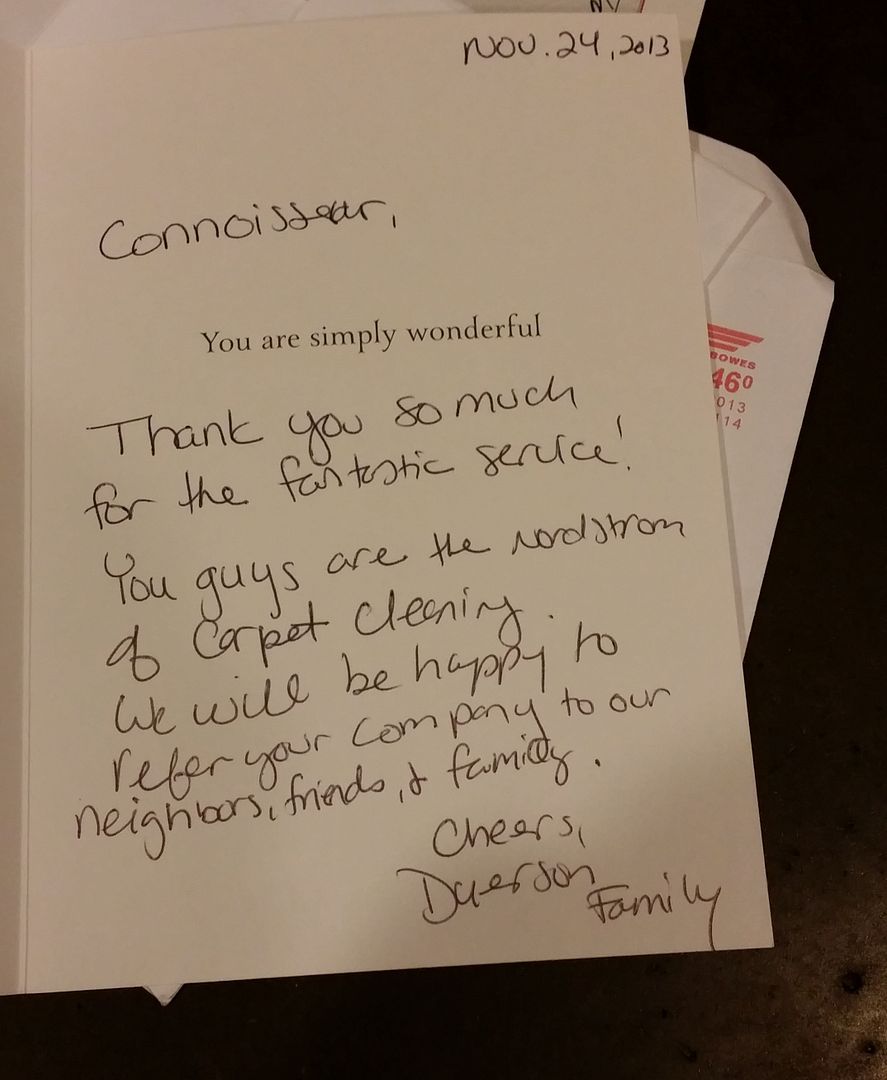 NOV. 24, 2013
Connoisseur,
You are simply wonderful
Thank you so much
for the fantastic service!
You guys are the nordstrom
of Carpet Cleaning.
We will be happy to
refer your company to our
neighbors, friends, & family.
Cheers,
Duerson
Family
NV
BOWES
460
013
114